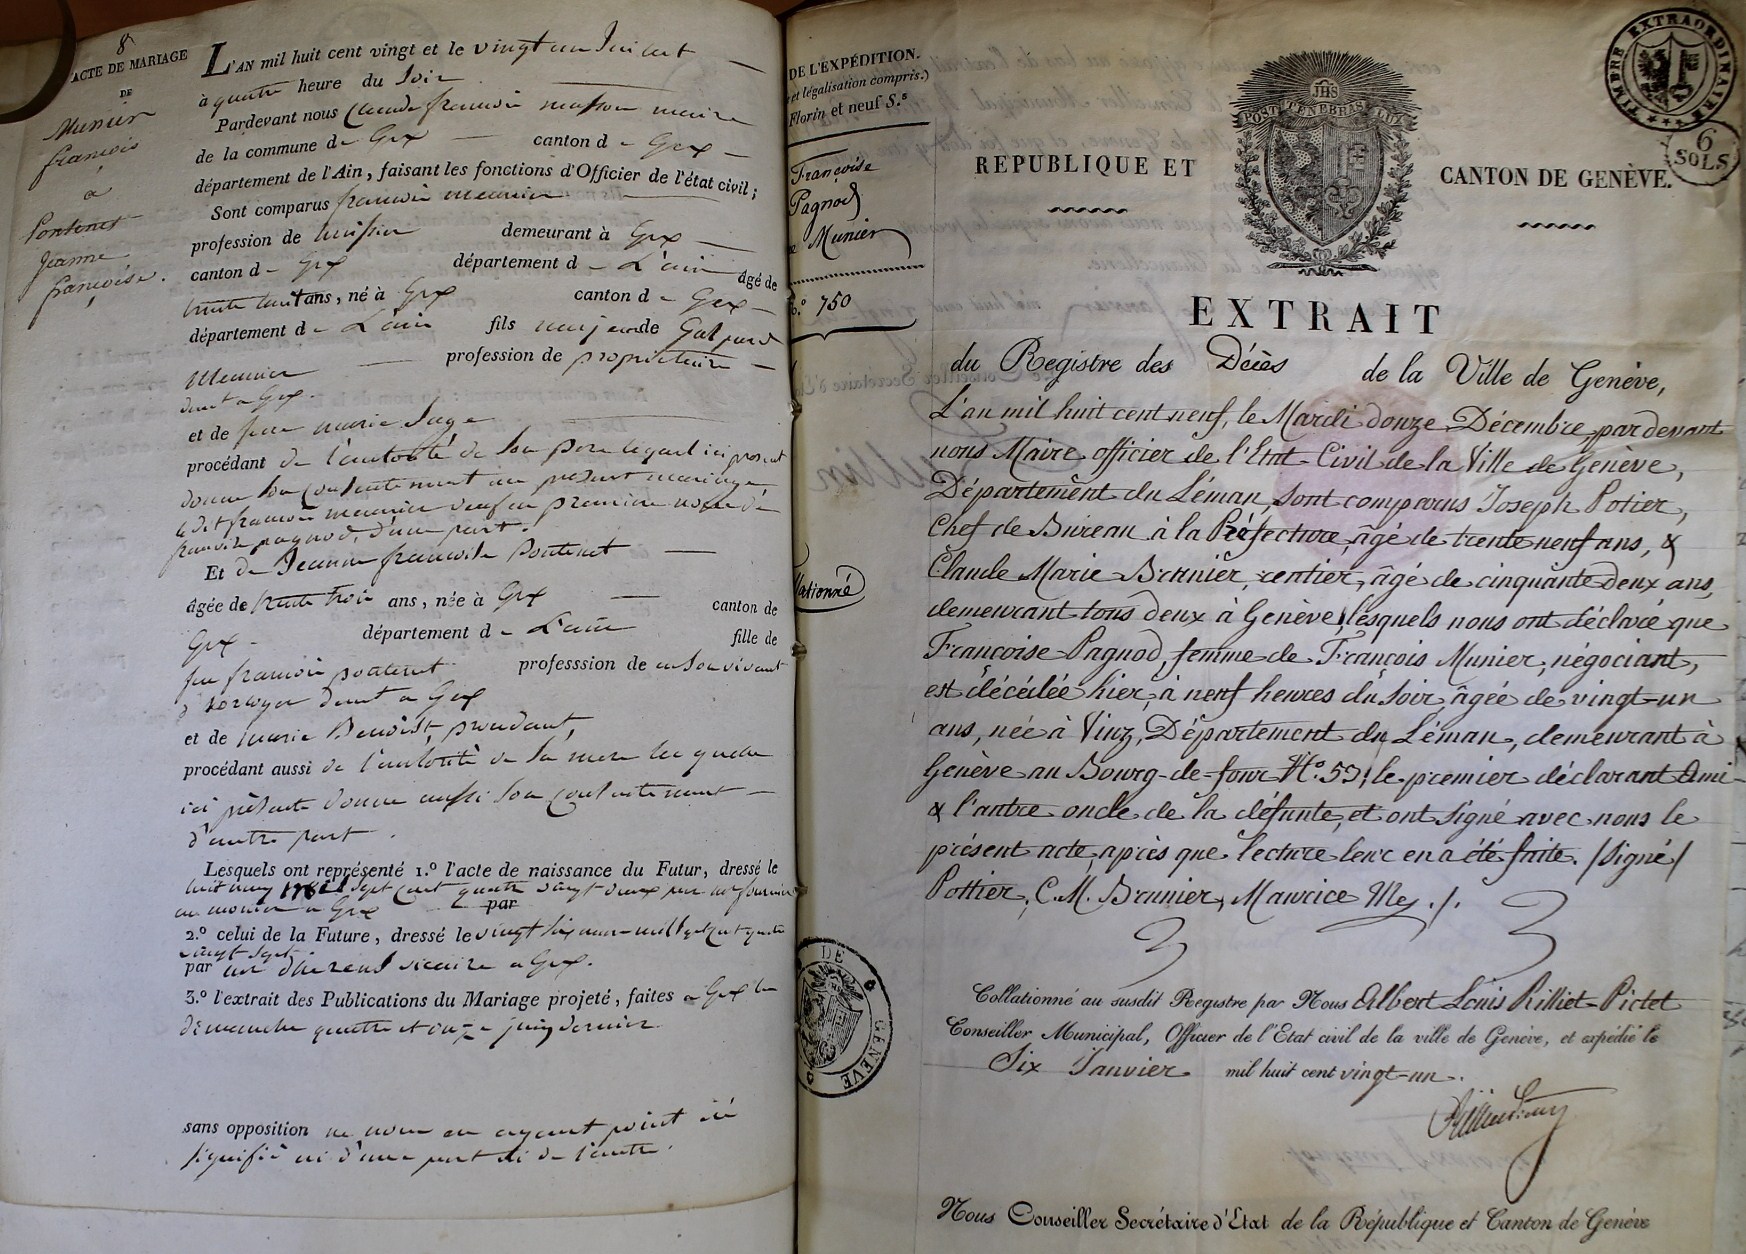 8
ACTE DE MARIAGE
DE
Munier
françois
a
Pontenet
Jeanne
françoise.
L'AN mil huit cent vingt et le vingt un Juillet
à quatre heure du Soir
Pardevant nous Claude françois maire
de la commune de Gex canton d - Gex -
département de l'Ain, faisant les fonctions d'Officier de l'état civil;
Sont comparus françois meunier
profession de demeurant à Gex -
canton d - Gex département d - L'ain âgé de
trente huit ans, né à Gex canton d - Gex -
département d - L'ain fils majeur de Gaspard
Meunier profession de propriétaire -
demt a Gex.
et de feue marie Juge
procédant de l'autorité de Son pere lequel ici présent
donne Son Consentement au présent mariage
ledit françois meunier veuf en premiere noce de
francoise pagnod, d'une part.
Et de Jeanne francoise Pontenet
âgée de trente trois ans, née à Gex canton de
Gex - département d - L'ain fille de
feu françois pontenet professsion de en Son vivant
demt a Gex
et de marie Benoist,
procédant aussi de l'autorité de Sa mere la quelle
ici présente donne aussi Son Consentement -
d'autre part.
Lesquels ont représenté 1.º l'acte de naissance du Futur, dressé le
sept cent quatre vingt deux par
a Gex par
2.º celui de la Future, dressé le vingt six mars mil sept cent quatre
vingt sept
par vicaire a Gex.
3.º l'extrait des Publications du Mariage projeté, faites a Gex les
dimanche quatre et onze juin dernier
sans opposition ne nous en ayant point été
signifié ni d'une part ni de l'autre.
DE L'EXPÉDITION.
et légalisation compris.)
Florin et neuf S.s
Françoise
Pagnod
e Munier
º. 750
lationné
DE GENÈVE
TIMBRE EXTRAORDINAIRE
6
SOLS
JHS
POST TENEBRAS LUX
REPUBLIQUE ET CANTON DE GENÈVE.
EXTRAIT
du Registre des Décès de la Ville de Genève,
L'an mil huit cent neuf, le Mardi douze Décembre, par devant
nous Maire officier de l'Etat Civil de la Ville de Genève,
Département du Léman, sont comparus Joseph Potier,
Chef de Bureau à la Préfecture, âgé de trente neuf ans, &
Claude Marie Brunier, rentier, âgé de cinquante deux ans,
demeurant tous deux à Genève, lesquels nous ont déclaré que
Françoise Pagnod, femme de François Munier, négociant,
est décédée hier, à neuf heures du soir, âgée de vingt-un
ans, née à Vinz, Département du Léman, demeurant à
Genève au Bourg-de-four Nº. 53; le premier déclarant Ami
& l'autre oncle de la défunte, et ont signé avec nous le
présent acte, après que lecture leur en a été faite. /Signé/
Pottier, C. M. Brunier, Maurice My ./.
Collationné au susdit Registre par Nous Albert Louis Rilliet-Pictet
Conseiller Municipal, Officier de l'Etat civil de la ville de Genève, et expédié le
Six Janvier mil huit cent vingt-un.
Nous Conseiller Secrétaire d'Etat de la République et Canton de Genève